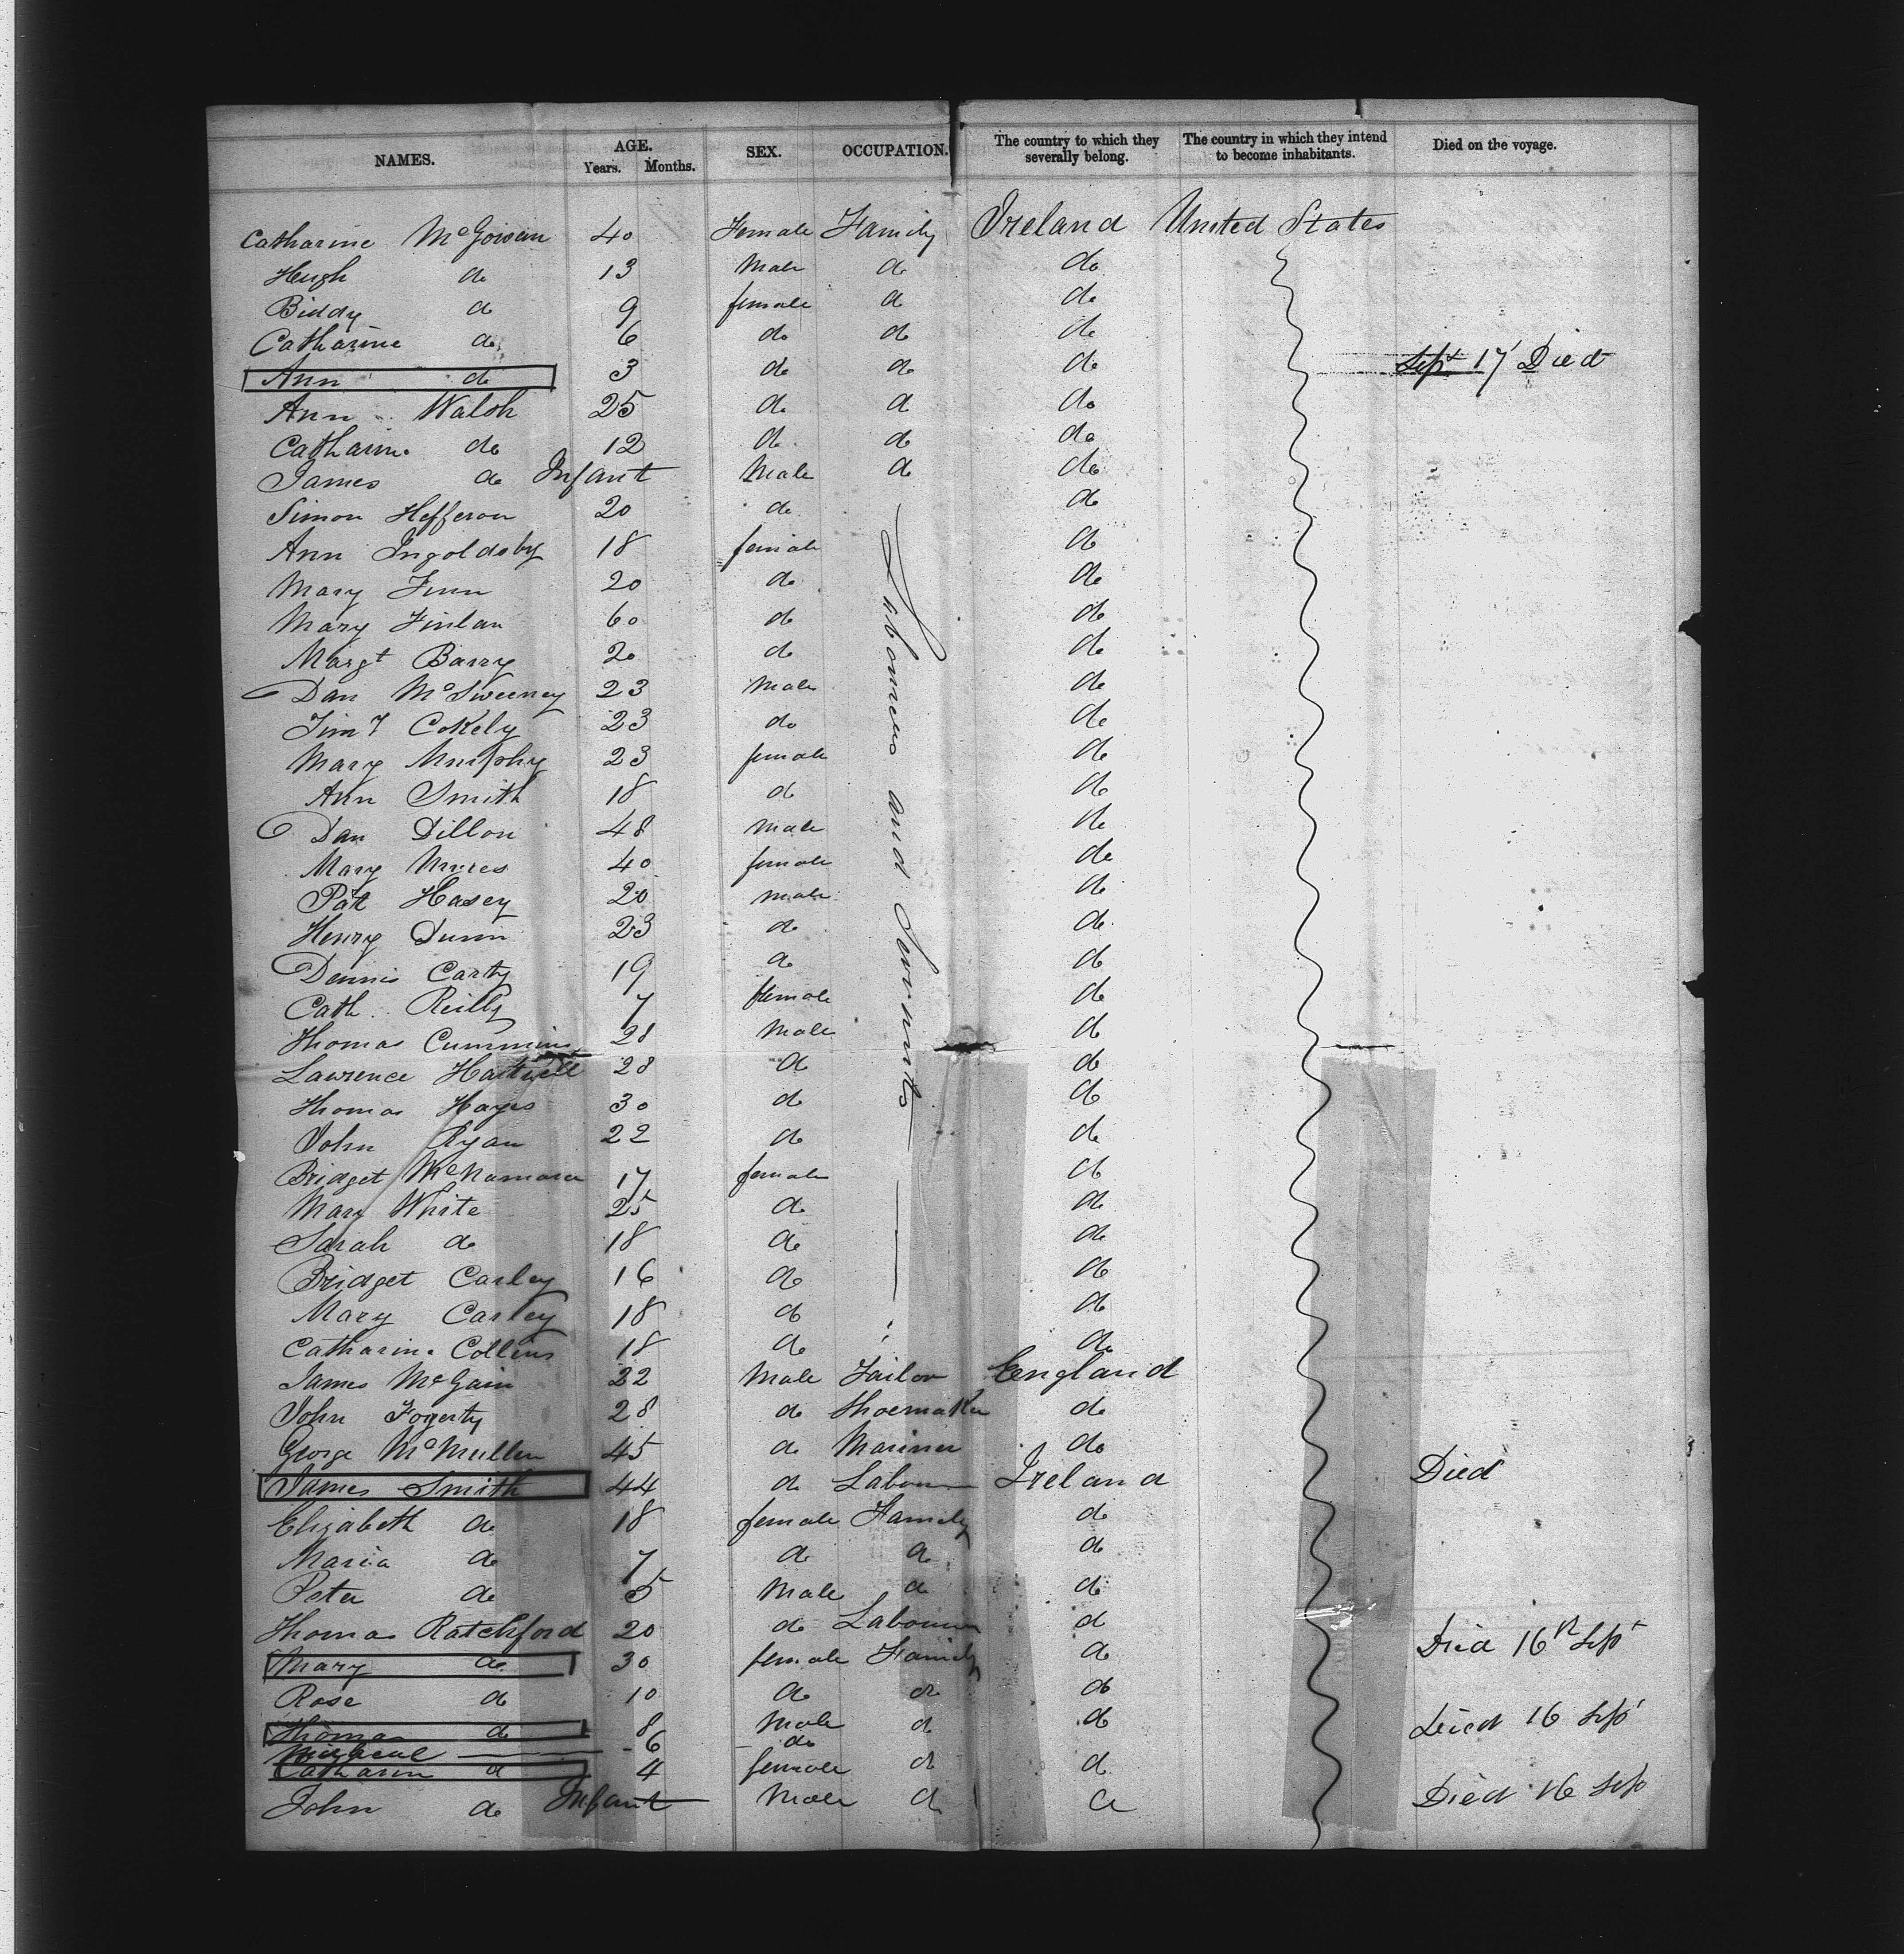 NAMES. AGE. Years. Months. SEX. OCCUPATION. The country to which they severally belong. The country in which they intend to become inhabitants. Died on the voyage.
Catharine McGowan 40 Female Family Ireland United States
Hugh do 13 Male do do
Biddy do 9 female do do
Catharine do 6 do do do
Ann do 3 do do do Sept 17 Died
Ann Walsh 25 do do do
Catharine do 12 do do do
James do Infant Male do do
Simon Hefferon 20 do do
Ann Ingoldsby 18 female do
Mary Finn 20 do do
Mary Finlan 60 do do
Margt Barry 20 do do
Dan McSweeney 23 Male do
Timy Cokely 23 do do
Mary Murphy 23 female do
Ann Smith 18 do do
Dan Dillon 48 Male do
Mary 40 female do
Pat Hasey 20 male do
Henry Dunn 23 do do
Dennis Carty 19 do do
Cath. Reilly 7 female do
Thomas Cummins 28 Male do
Lawrence Hartwell 28 do do
Thomas Hayes 30 do do
John Ryan 22 do do
Bridget McNamara 17 female do
Mary White 25 do do
Sarah do 18 do do
Bridget Carley 16 do do
Mary Carley 18 do do
Catharine Collins 18 do do
Labourers and Servants
James McGain 22 Male Tailor England
John Fogerty 28 do Shoemaker do
George McMullen 45 do Mariner do
James Smith 44 do Labourer Ireland Died
Elizabeth do 18 female Family do
Maria do 7 do do do
Peter do 5 Male do do
Thomas Ratchford 20 do Labourer do
Mary do 30 female Family do Died 16th Sept
Rose do 10 do do do
Thomas do 8 Male do do Died 16 Sept
Micheal 6 do
Catharin do 4 female do do
John do Infant Male do do Died 16 Sep